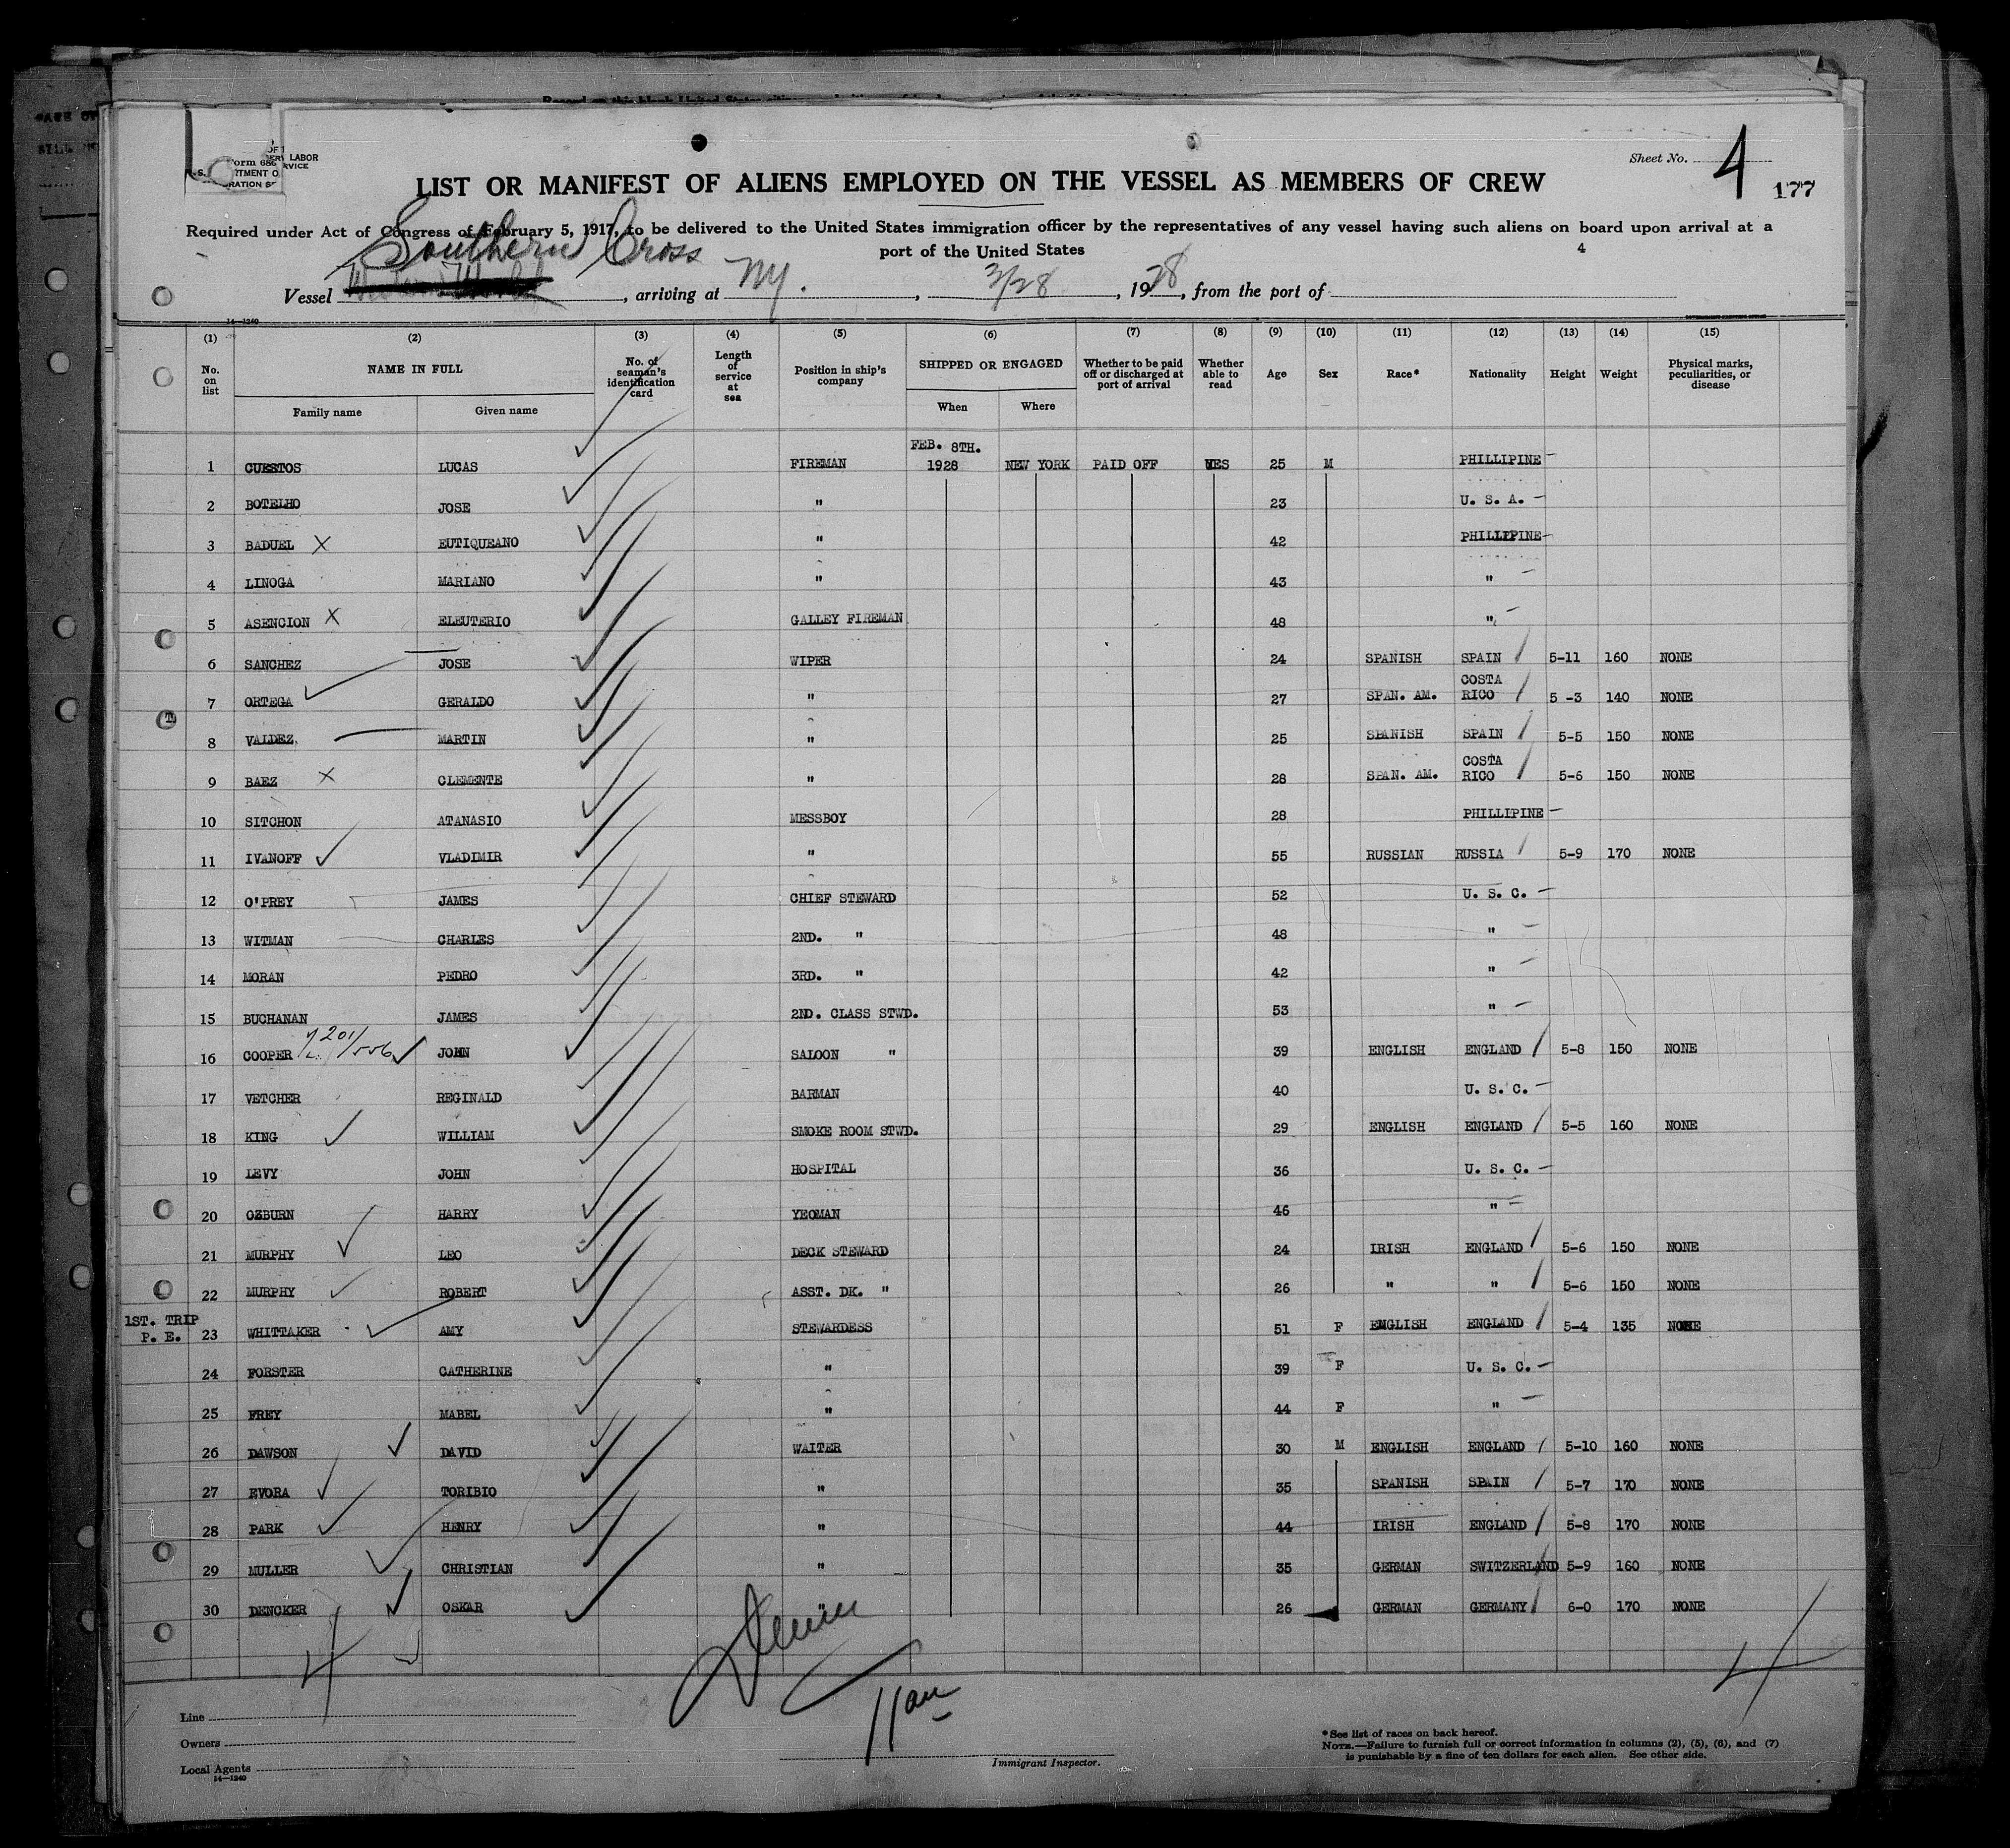 Sheet No. 4
177
LIST OR MANIFEST OF ALIENS EMPLOYED ON THE VESSEL AS MEMBERS OF CREW
Required under Act of Congress of February 5, 1917, to be delivered to the United States immigration officer by the representatives of any vessel having such aliens on board upon arrival at a
port of the United States
4
Southern Cross
Vessel , arriving at NY. , 3/28 , 1928, from the port of
14—1240
(1) (2) (3) (4) (5) (6) (7) (8) (9) (10) (11) (12) (13) (14) (15)
No. on list NAME IN FULL No. of seaman's identification card Length of service at sea Position in ship's company SHIPPED OR ENGAGED Whether to be paid off or discharged at port of arrival Whether able to read Age Sex Race* Nationality Height Weight Physical marks, peculiarities, or disease
Family name Given name When Where
FEB. 8TH.
1 CUESTOS LUCAS FIREMAN 1928 NEW YORK PAID OFF YES 25 M PHILLIPINE
2 BOTELHO JOSE " 23 U. S. A.
3 BADUEL X EUTIQUEANO " 42 PHILLIPINE
4 LINOGA MARIANO " 43 "
5 ASENCION X ELEUTERIO GALLEY FIREMAN 48 "
6 SANCHEZ JOSE WIPER 24 SPANISH SPAIN 5-11 160 NONE
7 ORTEGA GERALDO " 27 SPAN. AM. COSTA RICO 5 -3 140 NONE
8 VALDEZ MARTIN " 25 SPANISH SPAIN 5-5 150 NONE
9 BAEZ X CLEMENTE " 28 SPAN. AM. COSTA RICO 5-6 150 NONE
10 SITCHON ATANASIO MESSBOY 28 PHILLIPINE
11 IVANOFF VLADIMIR " 55 RUSSIAN RUSSIA 5-9 170 NONE
12 O'PREY JAMES CHIEF STEWARD 52 U. S. C.
13 WITMAN CHARLES 2ND. " 48 "
14 MORAN PEDRO 3RD. " 42 "
15 BUCHANAN JAMES 2ND. CLASS STWD. 53 "
16 COOPER 201/556 JOHN SALOON " 39 ENGLISH ENGLAND 5-8 150 NONE
17 VETCHER REGINALD BARMAN 40 U. S. C.
18 KING WILLIAM SMOKE ROOM STWD. 29 ENGLISH ENGLAND 5-5 160 NONE
19 LEVY JOHN HOSPITAL 36 U. S. C.
20 OZBURN HARRY YEOMAN 46 "
21 MURPHY LEO DECK STEWARD 24 IRISH ENGLAND 5-6 150 NONE
22 MURPHY ROBERT ASST. DK. " 26 " " 5-6 150 NONE
1ST. TRIP
P. E. 23 WHITTAKER AMY STEWARDESS 51 F ENGLISH ENGLAND 5-4 135 NONE
24 FORSTER CATHERINE " 39 F U. S. C.
25 FREY MABEL " 44 F "
26 DAWSON DAVID WAITER 30 M ENGLISH ENGLAND 5-10 160 NONE
27 EVORA TORIBIO " 35 SPANISH SPAIN 5-7 170 NONE
28 PARK HENRY " 44 IRISH ENGLAND 5-8 170 NONE
29 MULLER CHRISTIAN " 35 GERMAN SWITZERLAND 5-9 160 NONE
30 DENCKER OSKAR " 26 GERMAN GERMANY 6-0 170 NONE
Line
Owners
Local Agents
14—1240
Immigrant Inspector.
*See list of races on back hereof.
NOTE.—Failure to furnish full or correct information in columns (2), (5), (6), and (7)
is punishable by a fine of ten dollars for each alien. See other side.